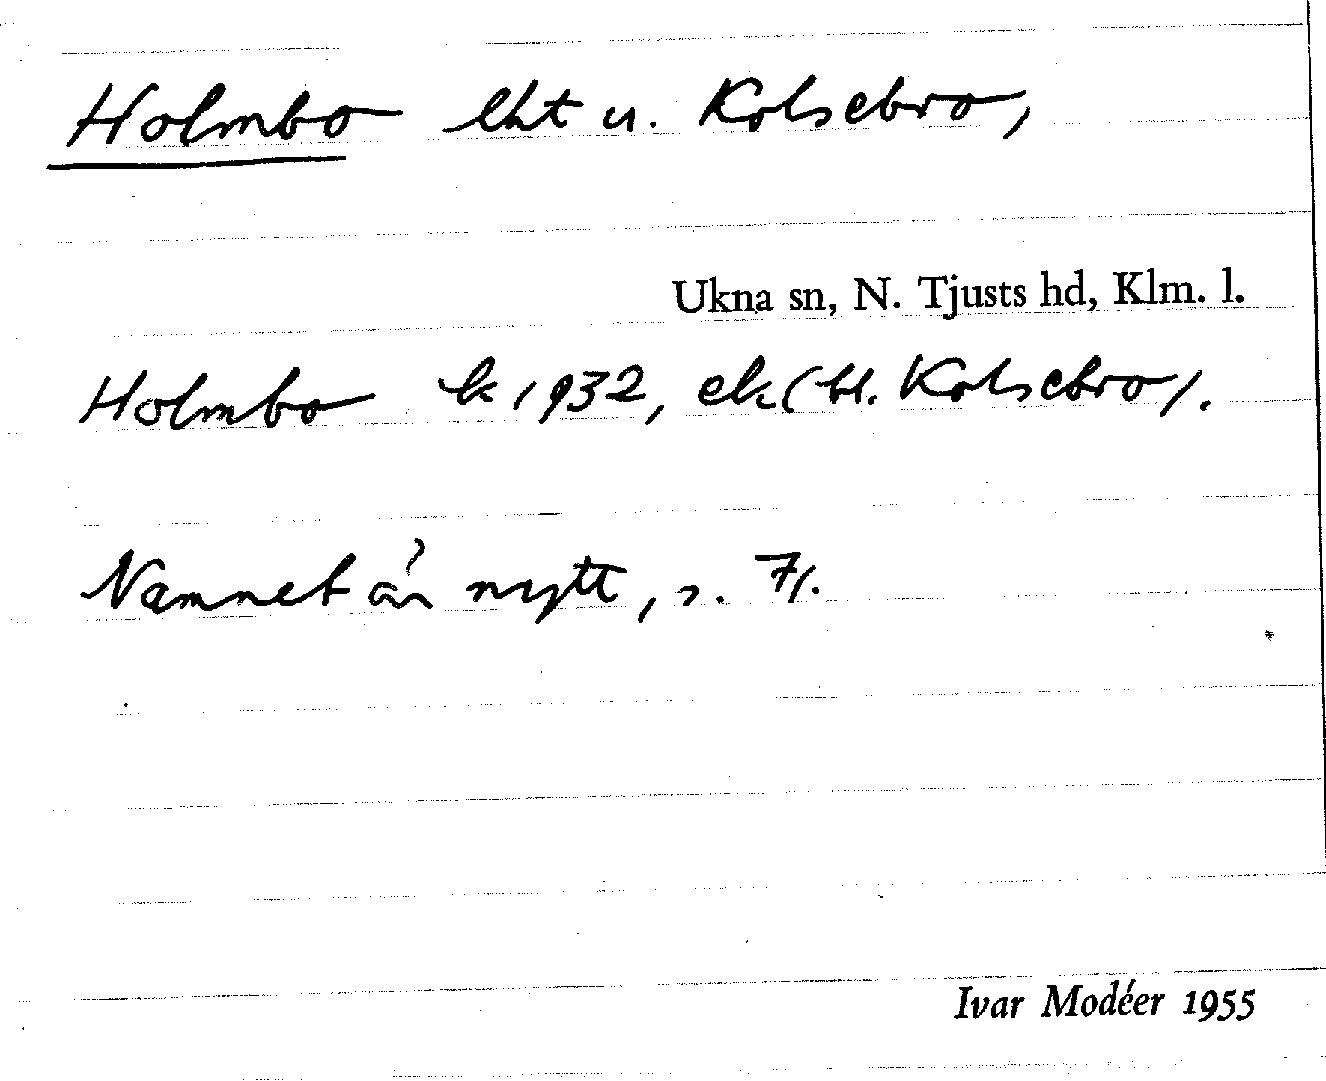 Holmbo lht u. Kolsebro,
Ukna sn, N. Tjusts hd, Klm. l.
Holmbo k 1932, ek (bl. Kolsebro).
Namnet är nytt, s. 71.
Ivar Modéer 1955